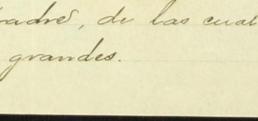 padre, de las cual
grandes.